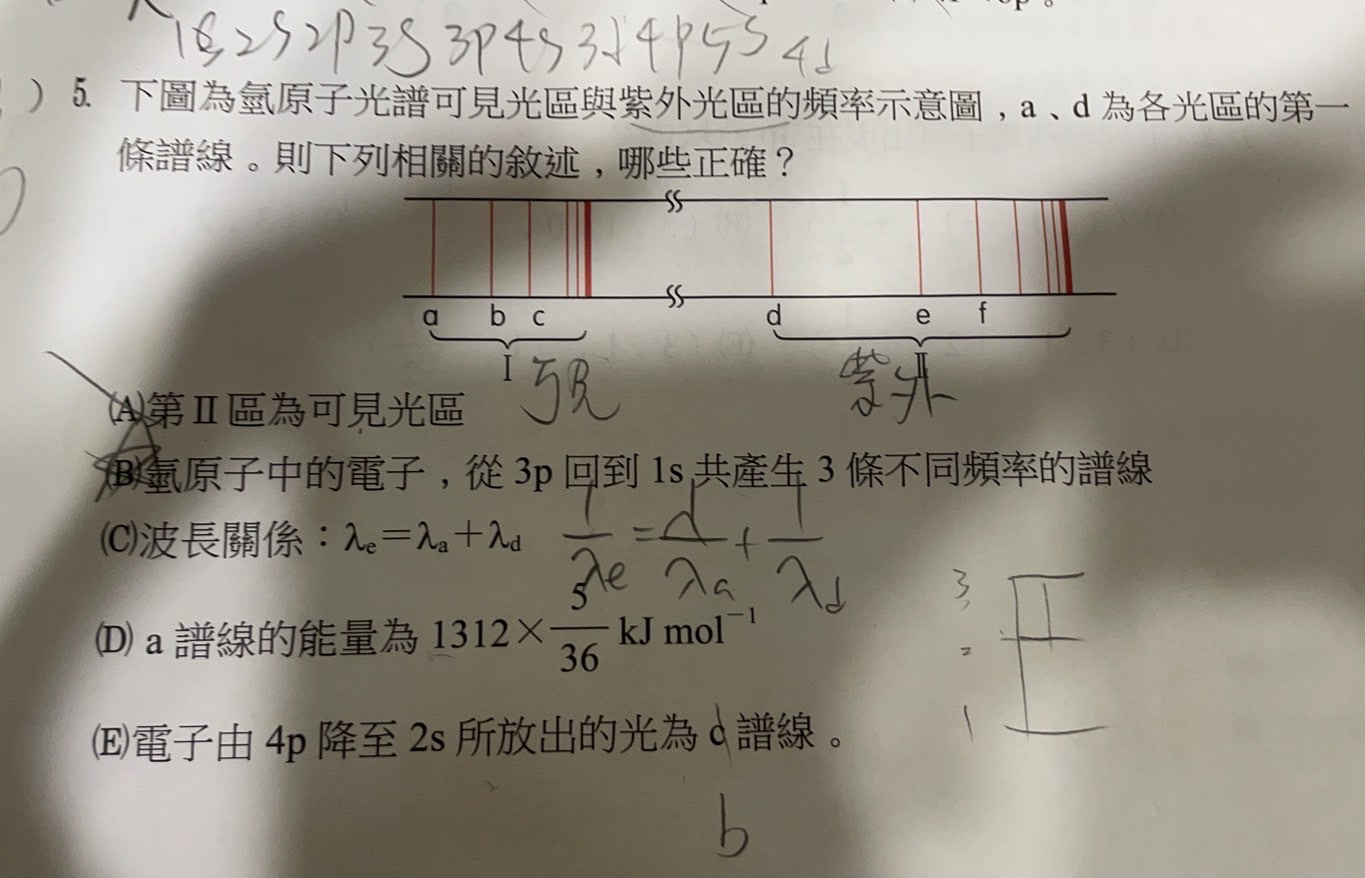 1s 2s 2p 3s 3p 4s 3d 4p 5s 4d
) 5. 下圖為氫原子光譜可見光區與紫外光區的頻率示意圖，a、d 為各光區的第一
條譜線。則下列相關的敘述，哪些正確？
a b c d e f
I II
可見 紫外
(A)第Ⅱ區為可見光區
(B)氫原子中的電子，從 3p 回到 1s 共產生 3 條不同頻率的譜線
(C)波長關係：λe＝λa＋λd 1/λe = 1/λa + 1/λd
(D) a 譜線的能量為 1312×5/36 kJ mol⁻¹
3
2
1
(E)電子由 4p 降至 2s 所放出的光為 c 譜線。
b